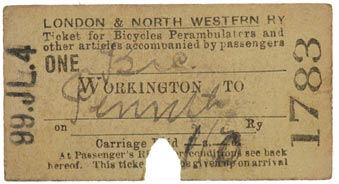 LONDON & NORTH WESTERN RY
Ticket for Bicycles Perambulators and
other articles accompanied by passengers
ONE Bic
WORKINGTON TO
Penrith
on Ry
Carriage Paid 1s.
At Passenger's conditions see back
hereof. This ticket to be given up on arrival
99 JL.4
1783